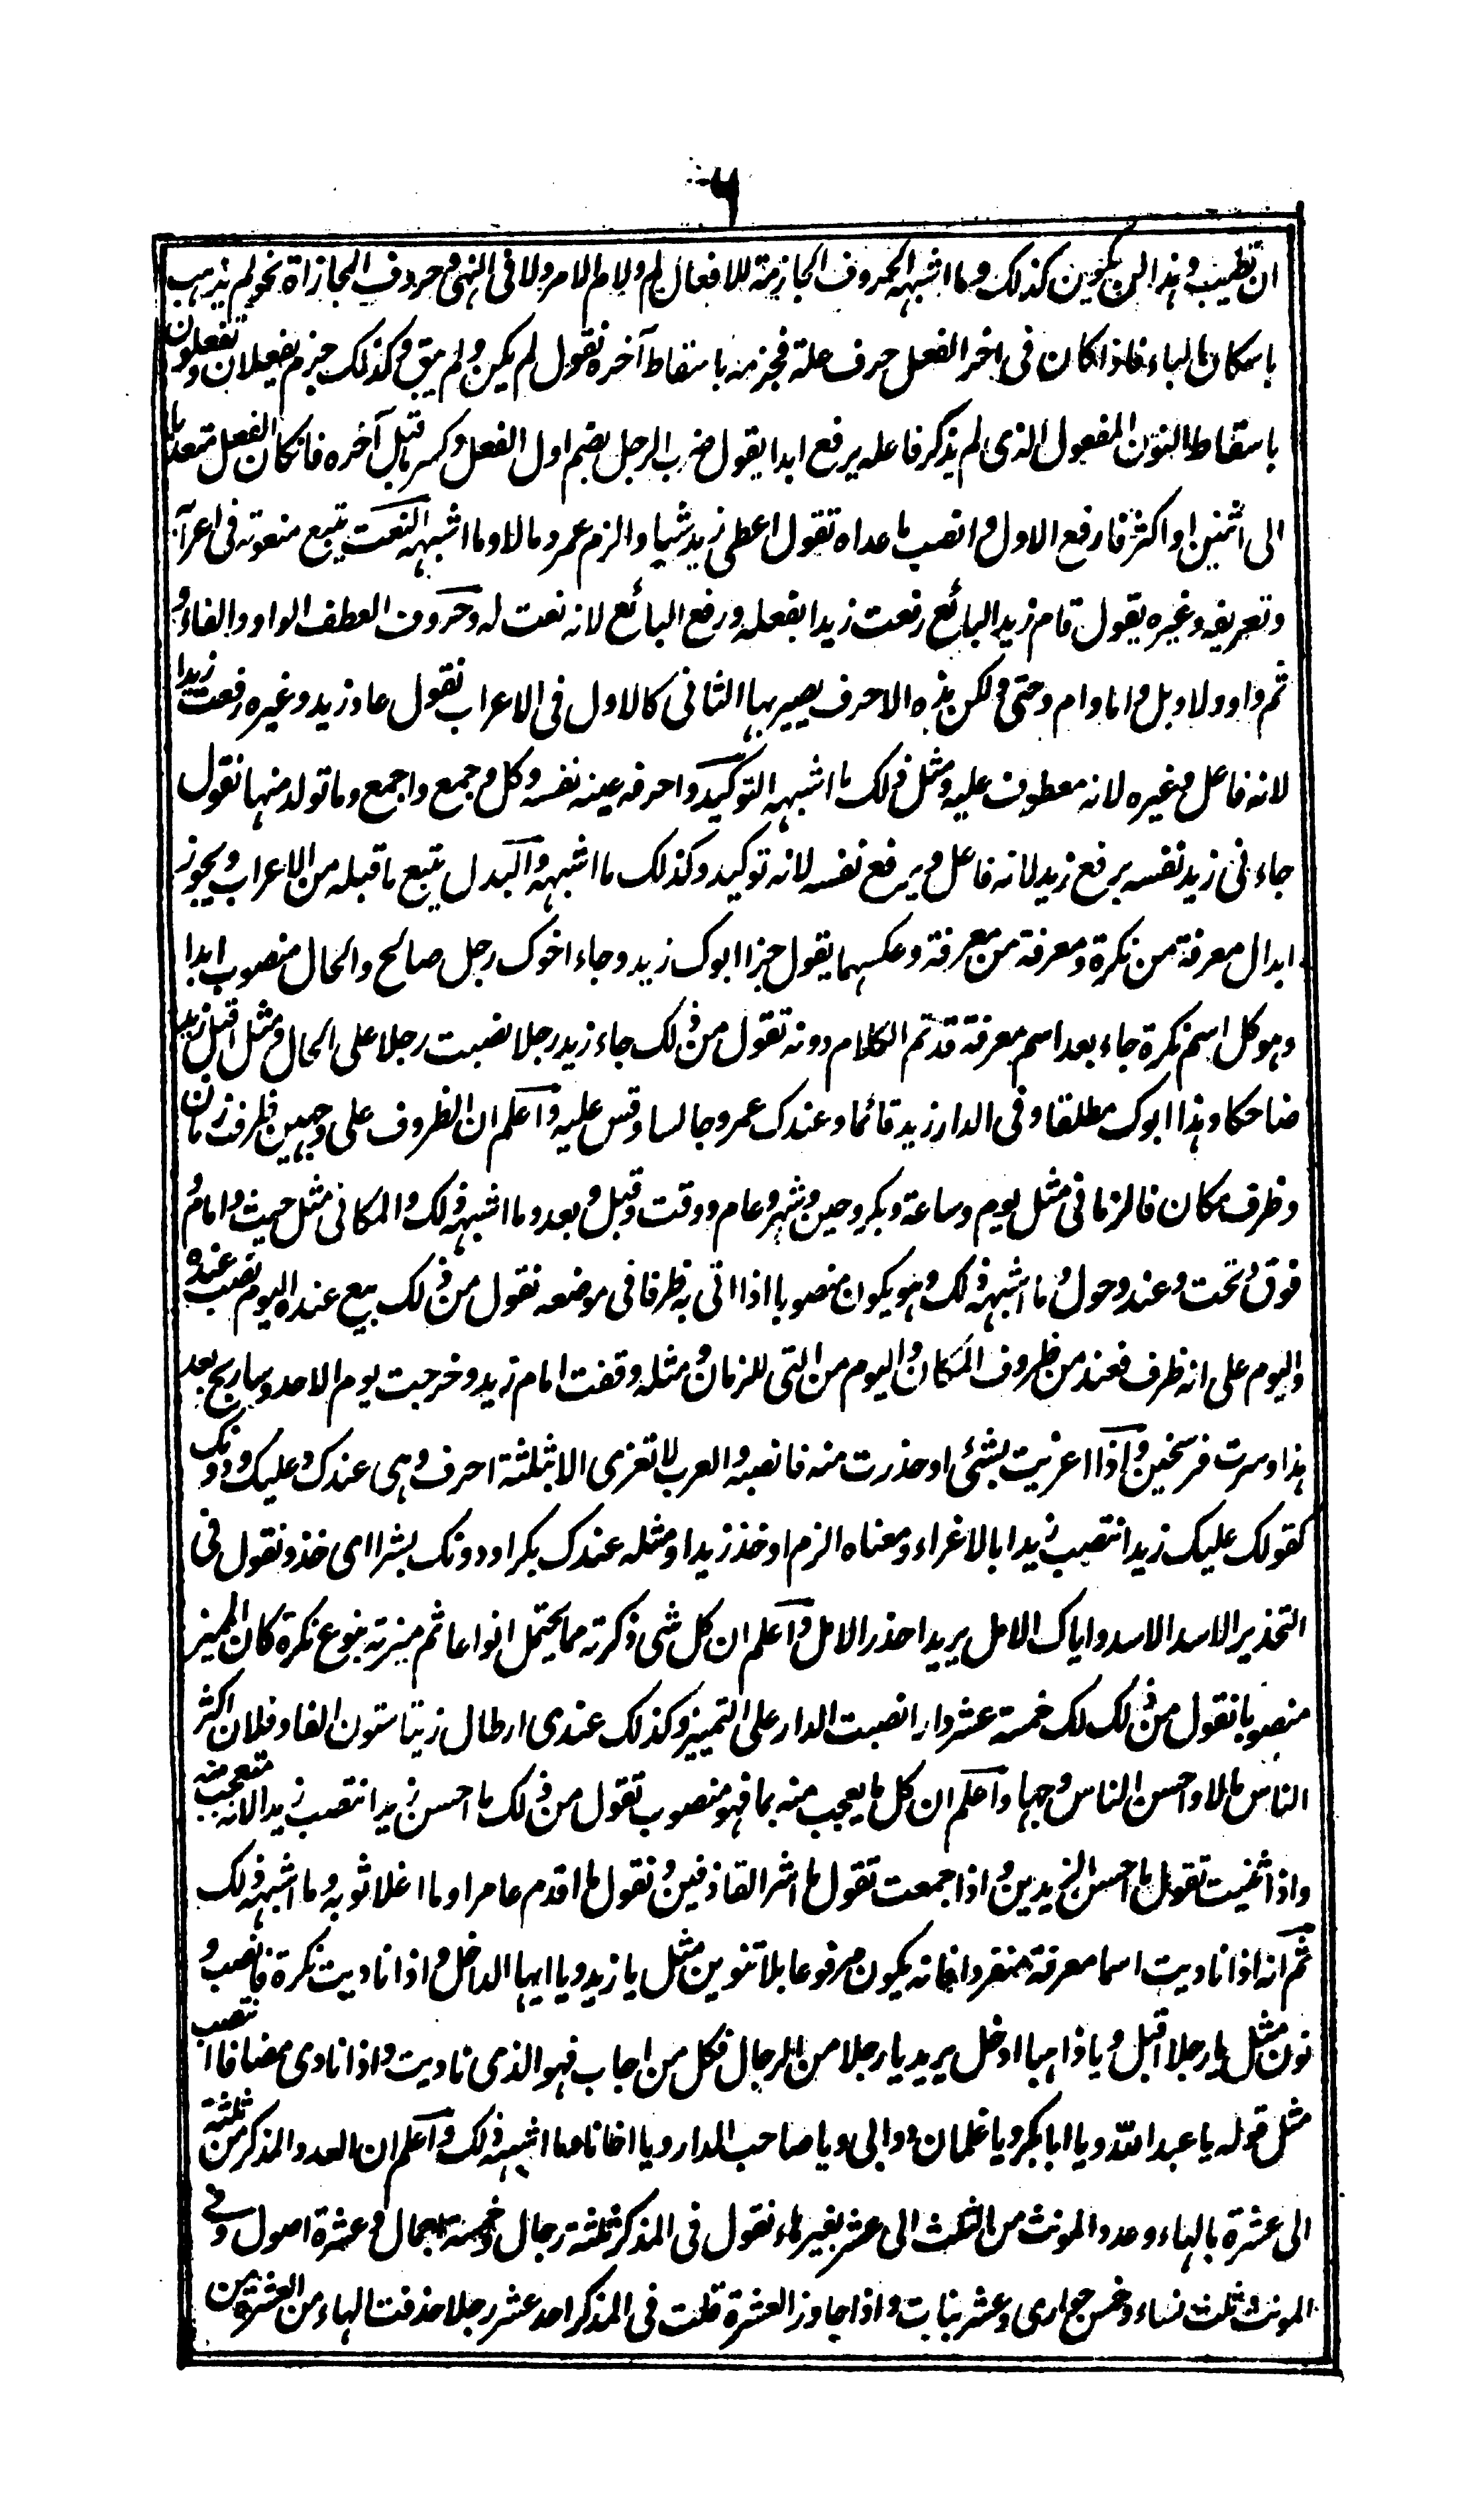 ٦
ان تطيب وهذا لن يكون كذلك وما اشبهه الحروف الجازمة للافعال لم ولام الامر ولا فى النهى وحروف المجازاة نحو لم يذهب
باسكان الباء فاذا كان فى اخر الفعل حرف علة فجزمه باسقاط آخره نقول لم يكن ولم يبق وكذلك جزم يفعلان وتفعلون
باسقاط النون المفعول الذى لم يذكر فاعله يرفع ابدا يقول ضرب الرجل بضم اول الفعل وكسر ما قبل آخره فانكان الفعل متعديا
الى اثنين او اكثر فارفع الاول وانصب ما عداه تقول اعطى زيد شيا والزم عمرو مالا وما اشبهه النعت يتبع منعوته فى اعرابه
وتعريفه وغيره يقول قام زيد البائع رفعت زيدا بفعله ورفع البائع لانه نعت له وحروف العطف الواو والفاء و
ثم واو ولا وبل واما وام وحتى ولكن هذه الاحرف يصير بها الثانى كالاول فى الاعراب نقول عاد زيد وغيره رفعت زيدا
لانه فاعل وغيره لانه معطوف عليه ومثل ذلك ما اشبهه التوكيد واحرفه عينه نفسه وكل وجمع واجمع وما تولد منها نقول
جاءنى زيد نفسه برفع زيد لانه فاعل ويرفع نفسه لانه توكيد وكذلك ما اشبهه والبدل يتبع ما قبله من الاعراب ويجوز
ابدال معرفة من نكرة ومعرفة من معرفة وعكسهما يقول هذا ابوك زيد وجاء اخوك رجل صالح والحال منصوب ابدا
وهو كل اسم نكرة جاء بعد اسم معرفة قد تم الكلام دونه تقول من ذلك جاء زيد رجلا نصبت رجلا على الحال ومثل اقبل زيد
ضاحكا وهذا ابوك مطلقا وفى الدار زيد قائما وعندك عمرو جالسا وقس عليه واعلم ان الظروف على وجهين ظرف زمان
وظرف مكان فالزمانى مثل يوم وساعة وبكر وحين وشهر وعام ووقت وقبل وبعد وما اشبه ذلك والمكانى مثل حيث وامام و
فوق وتحت وعند وحول وما اشبه ذلك وهو يكون منصوبا اذا اتى به ظرفا فى موضعه نقول من ذلك بيع عنده اليوم نصب عنده
واليوم على انه ظرف فعند من ظروف المكان واليوم من التى للزمان ومثله وقفت امام زيد وخرجت يوم الاحد وساريج بعد
هذا وسرت فرسخين واذا اغريت بشئ او حذرت منه فانصبه والعرب لا تغرى الا بثلثة احرف وهى عندك وعليك ودونك
كقولك عليك زيدا نتصب زيدا بالاغراء ومعناه الزم او خذ زيدا ومثله عندك بكرا ودونك بشرا اى خذ ونقول فى
التحذير الاسد الاسد واياك الامل يريد احذر الامل واعلم ان كل شى ذكرته مما يحتمل انواعا ثم ميزته بنوع نكرة كان المميز
منصوبا نقول من ذلك لك خمسة عشر دارا نصبت الدار على التمييز وكذلك عندى ارطال زيتا ستون الفا وفلان اكثر
الناس مالا واحسن الناس وجها واعلم ان كل ما يعجب منه بما فهو منصوب تقول من ذلك ما احسن زيدا نتصب زيدا لانه متعجب منه
واذا ثنيت تقول ما احسن الزيدين واذا جمعت تقول ما اشر القاذفين ونقول ما اقدم عامرا وما اغلا ثوبه وما اشبه ذلك
ثم انه اذا ناديت اسما معرفة منفردا فانه يكون مرفوعا بلا تنوين مثل يا زيد ويا ايها الداخل واذا ناديت نكرة فانصب و
نون مثل يا رجلا اقبل ويا ذاهبا ادخل يريد يا رجلا من الرجال فكل من اجاب فهو الذى ناديت واذا نادى مضافا انتصب
مثل قوله يا عبد الله ويا ابا بكر ويا غلمان والى ويا صاحب الدار ويا اخانا وما اشبه ذلك واعلم ان العدد المذكر من ثلثة
الى عشرة بالهاء وعدد المونث من الثلث الى عشر بغير هاء نقول فى المذكر ثلثة رجال وخمسة جمال وعشرة اصول وفى
المونث ثلث نساء وخمس جوارى وعشر بنات واذا جاوز العشرة قلت فى المذكر احد عشر رجلا حذفت الهاء من العشرة من